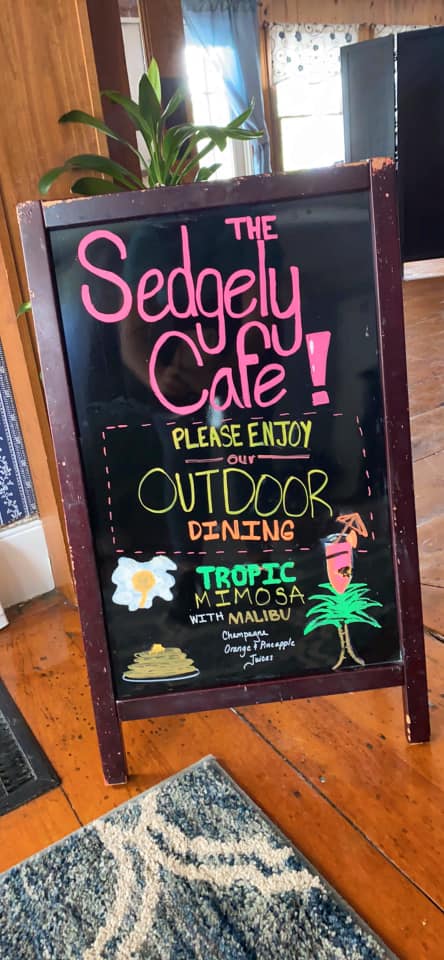 THE
Sedgely
Cafe!
PLEASE ENJOY
our
OUTDOOR
DINING
TROPIC
MIMOSA
WITH MALIBU
Champagne
Orange & Pineapple
Juices